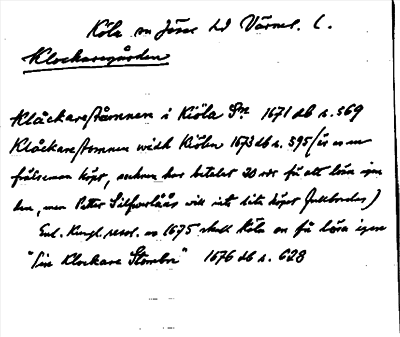 Köla sn Jösse hd Värml. l.
Klockaregården
Klåckarestâmnen i Kiöla Sn 1671 db s. 569
Klåckarestomnen widh Kiöln 1673 db s. 595 (är en
frälseman köpt, socknen har betalat 20 rdr få att lösa igen
den, men Peter Silfwerlåås vill inte låta köpet
Enl. Kungl. resol. av 1675 skall Köla sn få lösa igen
"Sin Klockare Stombn" 1676 db s. 628